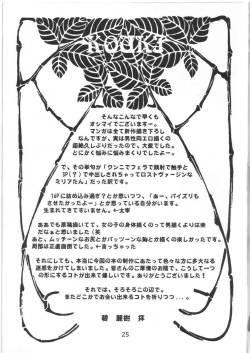 KOUKI
そんなこんなで早くも
オシマイでございますー。
マンガは全て新作描き下ろし
なんですが、実は男性向エロ描くの
超絶久しぶりだったので、大変でした。
とにかく悩みに悩みまくりでしたよー。
で、その挙句が「ワンニでフェラで顔射で触手と
3P(?)で中出しされちゃってロストヴァージンな
ミリアたん」だった訳です。
1Pに詰め込み過ぎ?とか思いつつ、「あー、パイズリも
させたかったよー」とか思っている自分がいます。
生まれてきてすいません。
ああでも原稿描いてて、女の子の身体描くのって男描くよりは楽
だなぁと思いました(笑
あと、ムッチーンなお尻とかバッツーンな胸とか描くの楽しかったです。
局部は正直面倒でした。←言っちゃった
それにしても、本当に今回の本の制作にあたって色々な方に多大な
迷惑をかけてしまいました。皆さんのご厚情のお陰で、こうして一つ
の形にするコトが出来て嬉しいです。ありがとうございました!
それでは、そろそろこの辺で。
またどこかでお会い出来るコトを祈りつつ・・・。
碧 麗樹 拝
25